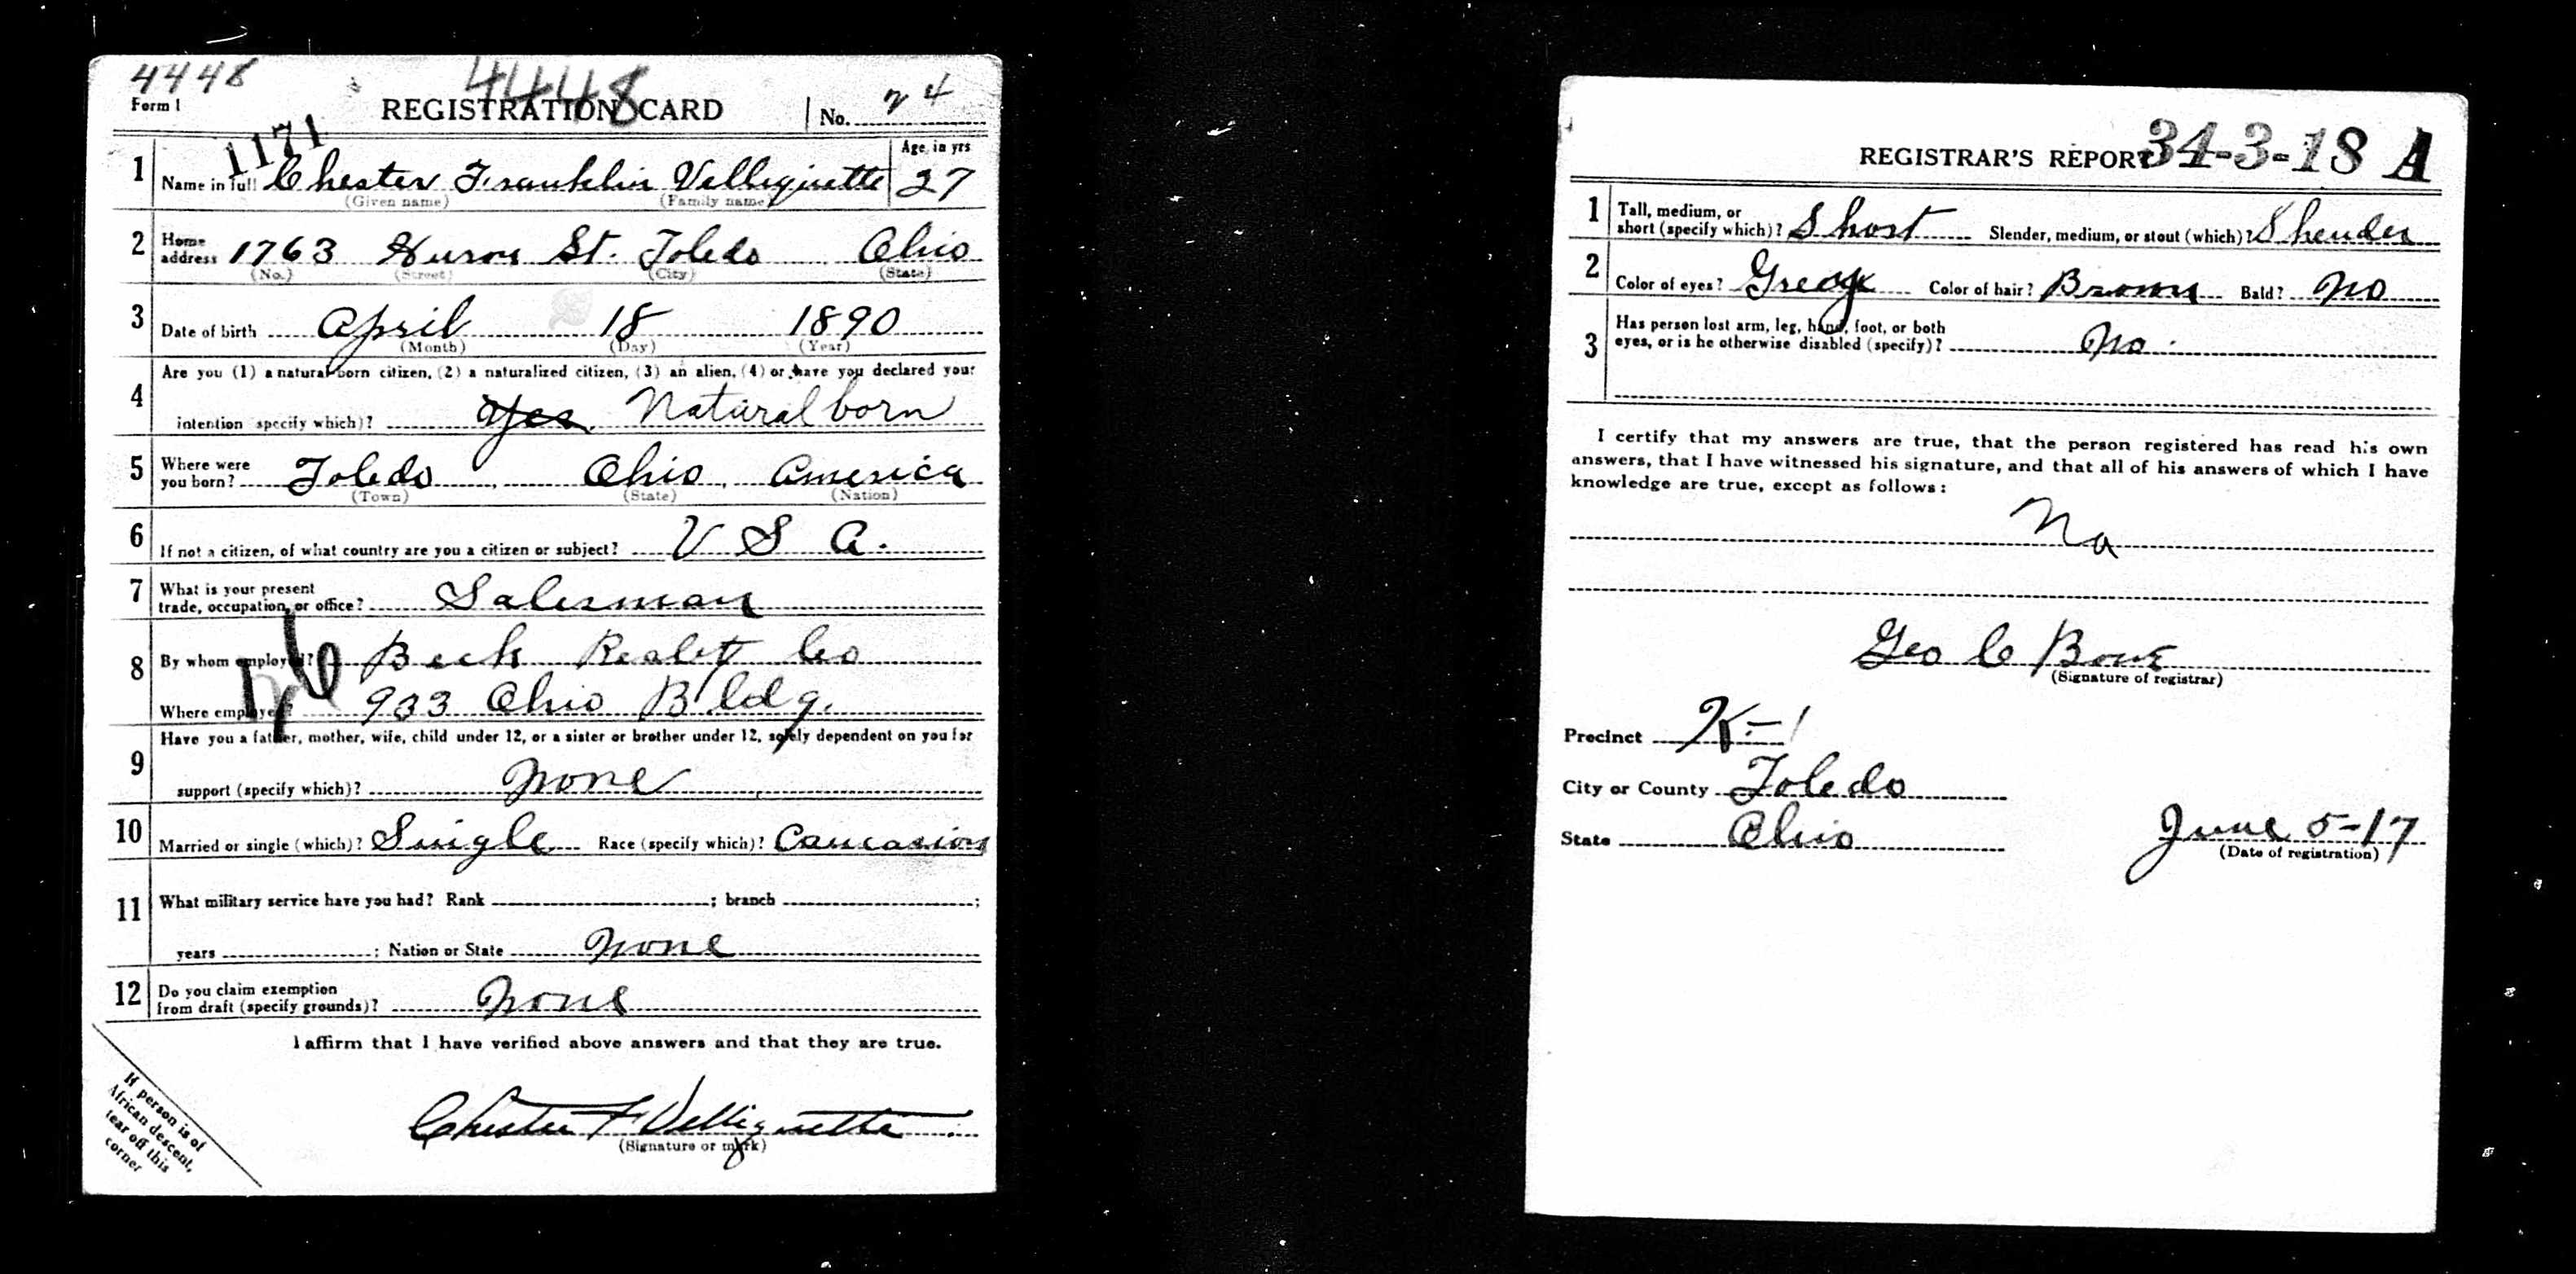 4448
4448
Form 1 REGISTRATION CARD No. 24
1171
1 Name in full Chester Franklin Velliquette Age, in yrs 27
(Given name) (Family name)
2 Home address 1763 Huron St. Toledo Ohio
(No.) (Street) (City) (State)
3 Date of birth April 18 1890
(Month) (Day) (Year)
4 Are you (1) a natural born citizen, (2) a naturalized citizen, (3) an alien, (4) or have you declared your
intention specify which)? Yes Natural born
5 Where were you born? Toledo, Ohio, America
(Town) (State) (Nation)
6 If not a citizen, of what country are you a citizen or subject? U S A.
7 What is your present
trade, occupation, or office? Salesman
8 By whom employed? Beck Realty Co
Where employed? 933 Ohio Bldg.
9 Have you a father, mother, wife, child under 12, or a sister or brother under 12, solely dependent on you for
support (specify which)? None
10 Married or single (which)? Single Race (specify which)? Caucasion
11 What military service have you had? Rank ; branch ;
years ; Nation or State None
12 Do you claim exemption
from draft (specify grounds)? None
I affirm that I have verified above answers and that they are true.
Chester F Velliquette
(Signature or mark)
If person is of
African descent,
tear off this
corner
REGISTRAR'S REPORT 34-3-18 A
1 Tall, medium, or
short (specify which)? Short Slender, medium, or stout (which)? Slender
2 Color of eyes? Grey Color of hair? Brown Bald? No
3 Has person lost arm, leg, hand, foot, or both
eyes, or is he otherwise disabled (specify)? No.
I certify that my answers are true, that the person registered has read his own
answers, that I have witnessed his signature, and that all of his answers of which I have
knowledge are true, except as follows:
No
Geo C
(Signature of registrar)
Precinct K-1
City or County Toledo
State Ohio June 5-17
(Date of registration)